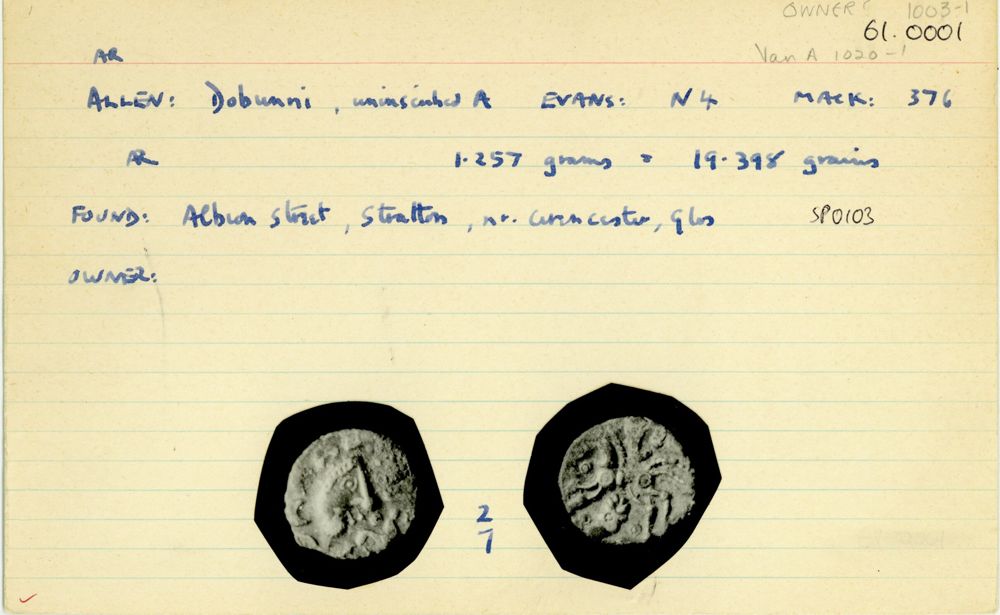 OWNER? 1003-1
61.0001
Van A 1020-1
AR
ALLEN: Dobunni, uninscribed A EVANS: N4 MACK: 376
AR 1.257 grams = 19.398 grains
FOUND: Albion Street, Stratton, nr. Cirencester, Glos SP0103
OWNER:
2
7